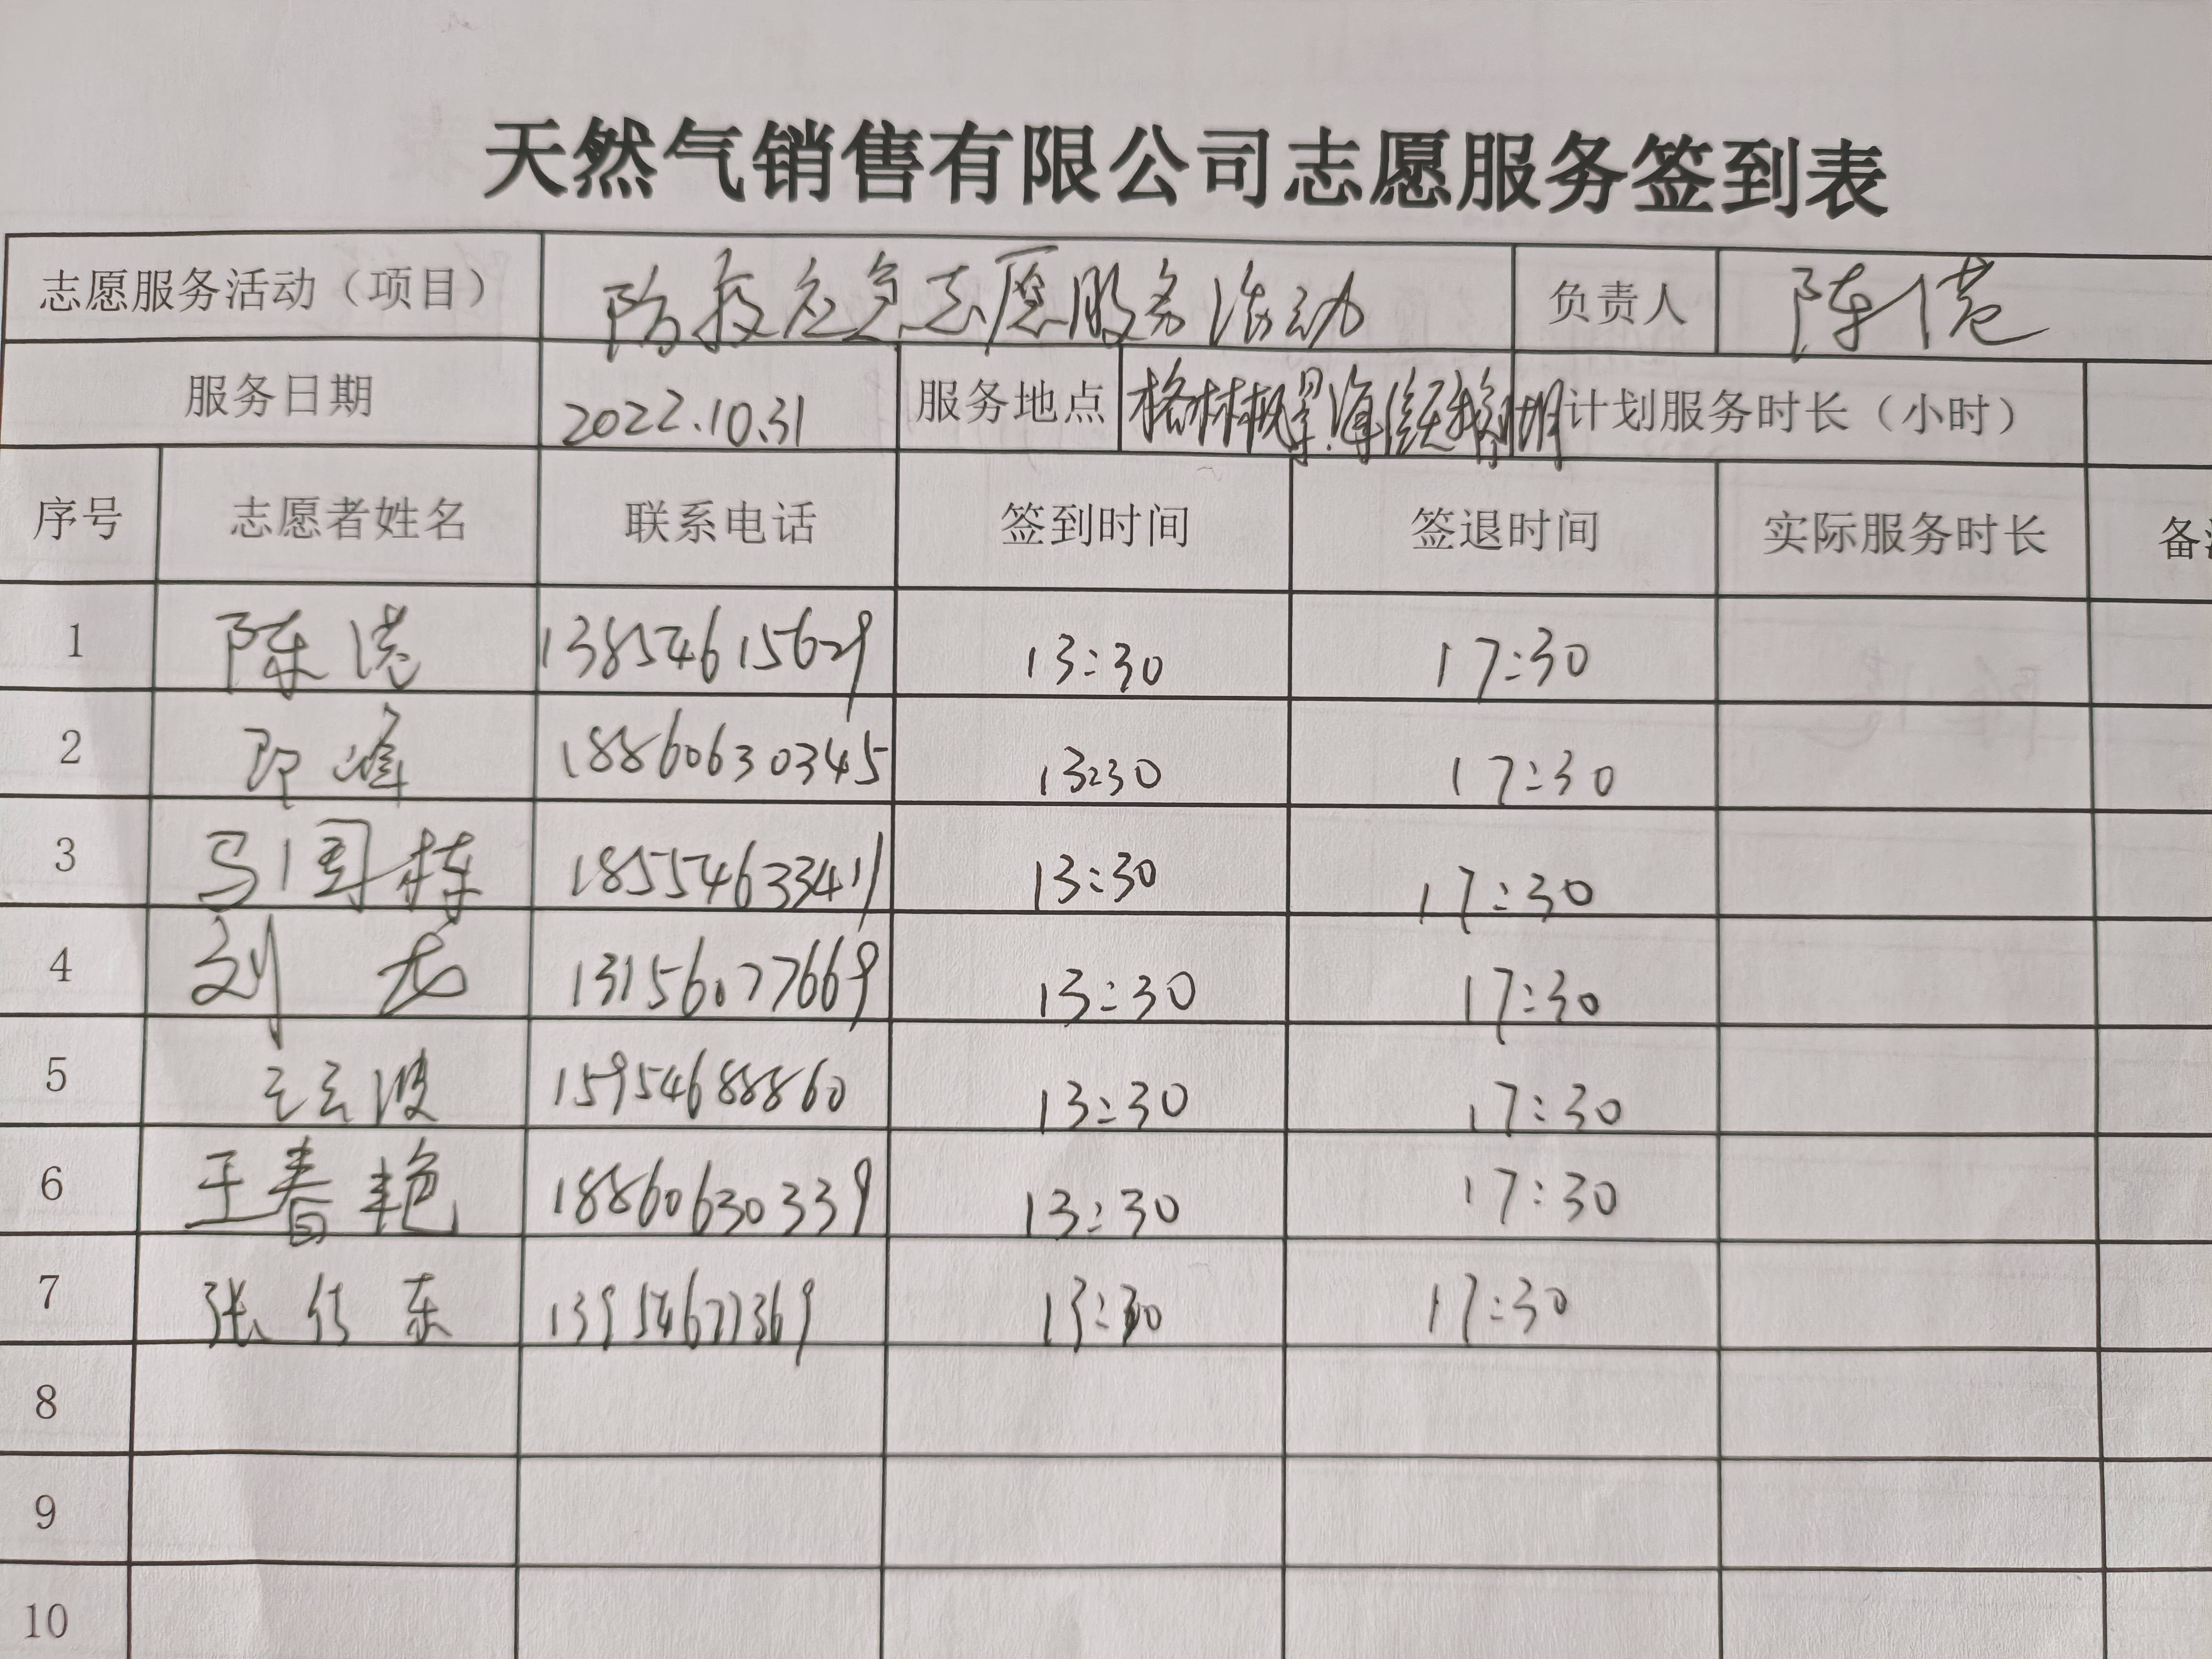 天然气销售有限公司志愿服务签到表
志愿服务活动（项目） 防疫应急志愿服务活动 负责人 陈港
服务日期 2022.10.31 服务地点 格林枫景.海 计划服务时长（小时）
序号 志愿者姓名 联系电话 签到时间 签退时间 实际服务时长 备注
1 陈港 13854615629 13:30 17:30
2 峰 18860630345 13:30 17:30
3 马国栋 18554633411 13:30 17:30
4 刘龙 13156077669 13:30 17:30
5 王云波 15954688860 13:30 17:30
6 王春艳 18860630339 13:30 17:30
7 张传东 13954677369 13:30 17:30
8
9
10